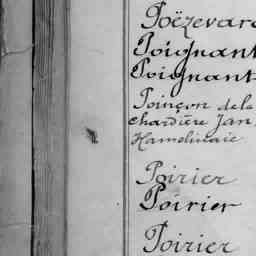 Poëzevara
Poignant
Poignant
Poinçon dela
chardière Jan
Hamelinaie
Poirier
Poirier
Poirier